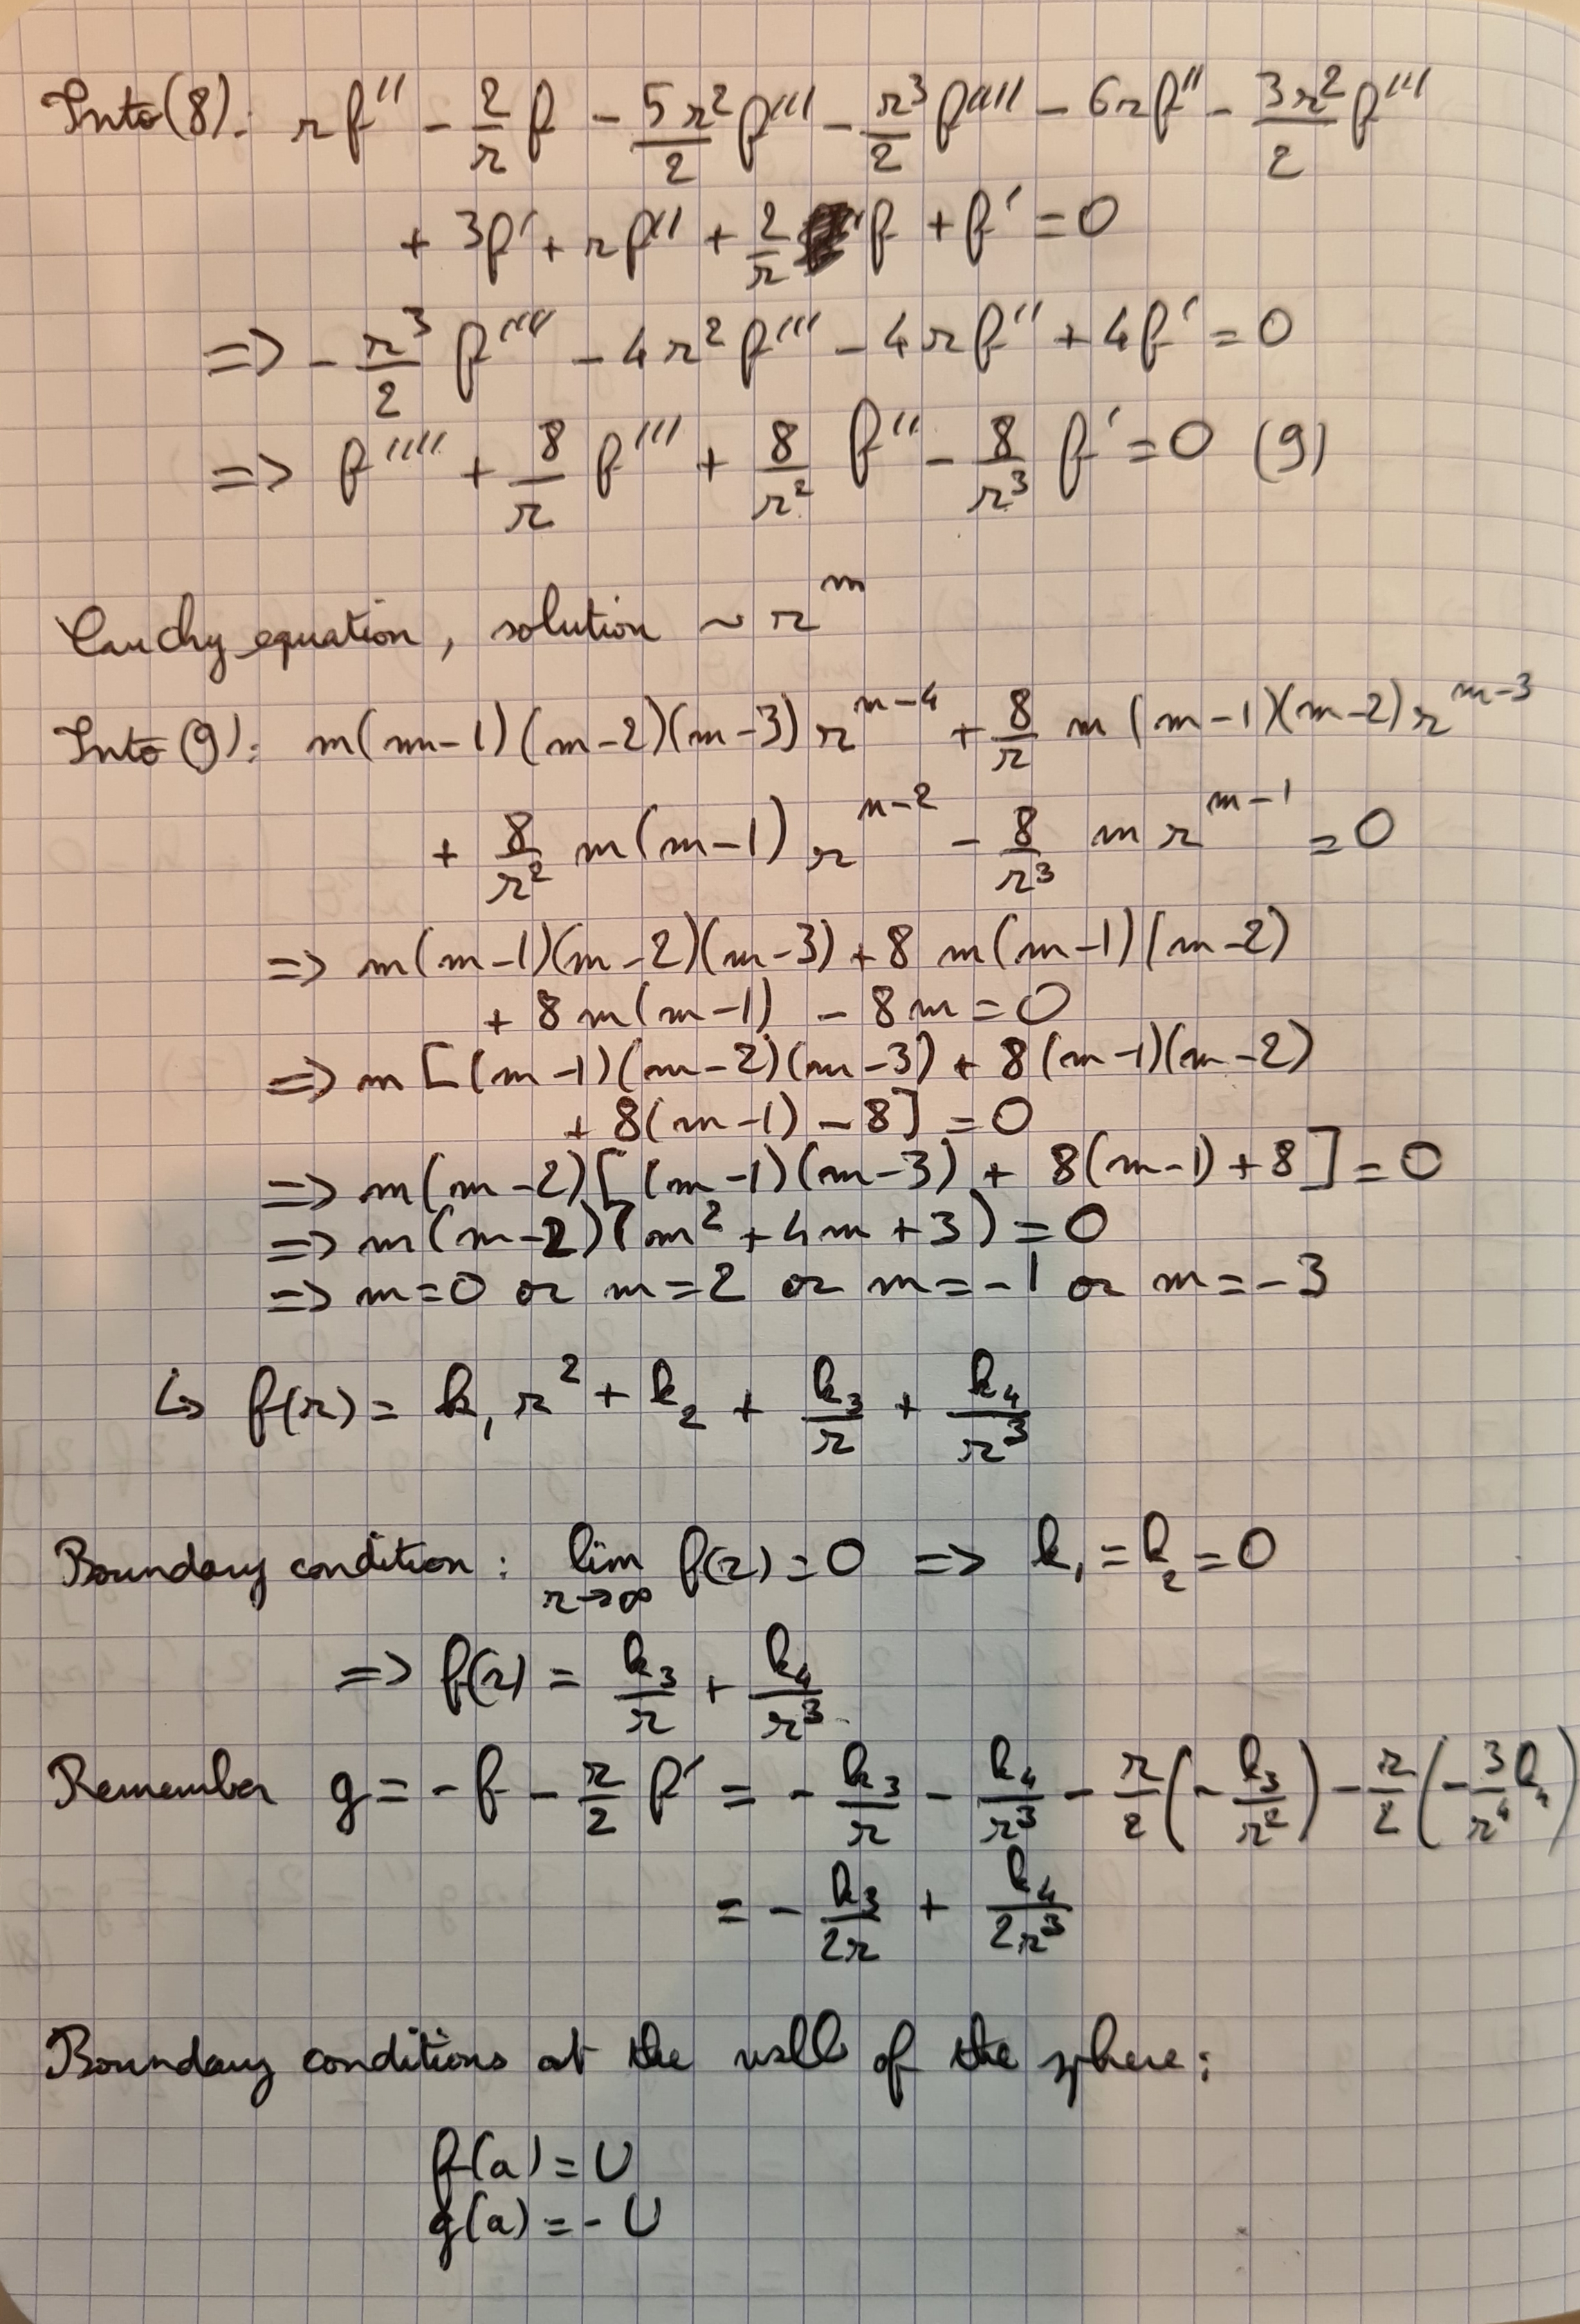 Into (8): rf'' - 2/r f - 5r²/2 f''' - r³/2 f'''' - 6rf'' - 3r²/2 f'''
+ 3f' + rf'' + 2/r f + f' = 0
=> - r³/2 f'''' - 4r² f''' - 4rf'' + 4f' = 0
=> f'''' + 8/r f''' + 8/r² f'' - 8/r³ f' = 0 (9)
Cauchy equation, solution ~ r^m
Into (9): m(m-1)(m-2)(m-3) r^(m-4) + 8/r m(m-1)(m-2) r^(m-3)
+ 8/r² m(m-1) r^(m-2) - 8/r³ m r^(m-1) = 0
=> m(m-1)(m-2)(m-3) + 8 m(m-1)(m-2)
+ 8m(m-1) - 8m = 0
=> m [(m-1)(m-2)(m-3) + 8(m-1)(m-2)
+ 8(m-1) - 8] = 0
=> m(m-2)[(m-1)(m-3) + 8(m-1) + 8] = 0
=> m(m-2)(m² + 4m + 3) = 0
=> m=0 or m=2 or m=-1 or m=-3
↳ f(r) = k₁ r² + k₂ + k₃/r + k₄/r³
Boundary condition: lim r→∞ f(r) = 0 => k₁ = k₂ = 0
=> f(r) = k₃/r + k₄/r³
Remember g = -f - r/2 f' = - k₃/r - k₄/r³ - r/2 (- k₃/r²) - r/2 (- 3k₄/r⁴)
= - k₃/2r + k₄/2r³
Boundary conditions at the wall of the sphere:
f(a) = U
g(a) = -U